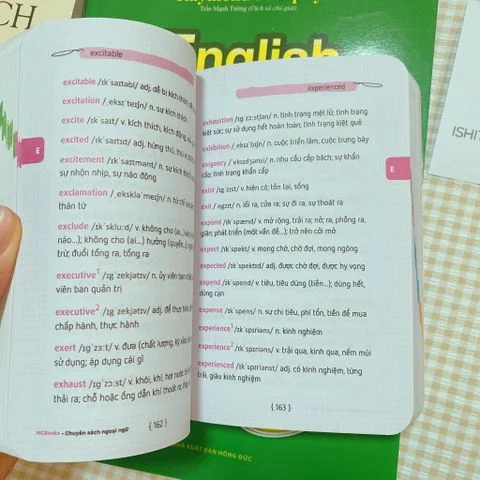 CH
Trần Mạnh Tường (Dịch và chú giải)
English
ISHIT
excitable
excitable /ɪkˈsaɪtəbl/ adj. dễ bị kích thích,
excitation /ˌeksɪˈteɪʃn/ n. sự kích thích
excite /ɪkˈsaɪt/ v. kích thích, kích động,
excited /ɪkˈsaɪtɪd/ adj. hứng thú,
excitement /ɪkˈsaɪtmənt/ n. sự kích thích
sự nhộn nhịp, sự náo động
exclamation /ˌekskləˈmeɪʃn/ n. từ chỉ sự
thán từ
exclude /ɪkˈskluːd/ v. không cho (ai...)
nào...); không cho (ai...) hưởng (quyền...),
trừ; đuổi tống ra, tống ra
executive¹ /ɪɡˈzekjətɪv/ n. ủy viên ban
viên ban quản trị
executive² /ɪɡˈzekjətɪv/ adj. để thực
chấp hành, thực hành
exert /ɪɡˈzɜːt/ v. đưa (chất lượng, kỹ
sử dụng; áp dụng cái gì
exhaust /ɪɡˈzɔːst/ v. khói, khí, hơi nước
thải ra; chỗ hoặc ống dẫn khí thoát ra;
MCBooks - Chuyên sách ngoại ngữ
{ 162 }
E
experienced
exhaustion /ɪɡˈzɔːstʃən/ n. tình trạng mệt lử, tình trạng
kiệt sức; sự sử dụng hết hoàn toàn; tình trạng kiệt quệ
exhibition /ˌeksɪˈbɪʃn/ n. cuộc triển lãm, cuộc trưng bày
exigency /ˈeksɪdʒənsi/ n. nhu cầu cấp bách; sự khẩn
cấp; tình trạng khẩn cấp
exist /ɪɡˈzɪst/ v. hiện có; tồn tại, sống
exit /ˈeɡzɪt/ v. lối ra, cửa ra; sự đi ra, sự thoát ra
expand /ɪkˈspænd/ v. mở rộng, trải ra; nở ra, phồng ra,
giãn; phát triển (một vấn đề...); trở nên cởi mở
expect /ɪkˈspekt/ v. mong chờ, chờ đợi, mong ngóng
expected /ɪkˈspektɪd/ adj. được chờ đợi, được hy vọng
expend /ɪkˈspend/ v. tiêu, tiêu dùng (tiền...); dùng hết,
dùng cạn
expense /ɪkˈspens/ n. sự chi tiêu, phí tổn, tiền để mua
experience¹ /ɪkˈspɪriəns/ n. kinh nghiệm
experience² /ɪkˈspɪriəns/ v. trải qua, kinh qua, nếm mùi
experienced /ɪkˈspɪriənst/ adj. có kinh nghiệm, từng
trải, giàu kinh nghiệm
{ 163 }
E
NHÀ XUẤT BẢN HỒNG ĐỨC